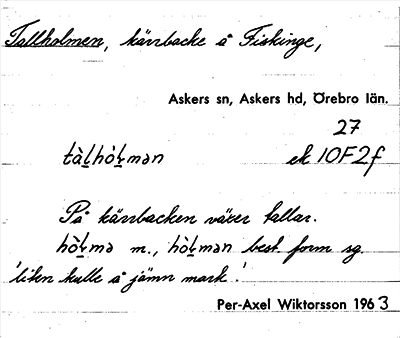 Tallholmen, kärrbacke å Fiskinge,
Askers sn, Askers hd, Örebro län.
27
tàḷhòḷmən ek 10F2f
På kärrbacken växer tallar.
hòḷmə m., hòḷmən best. form sg.
'liten kulle å jämn mark'.
Per-Axel Wiktorsson 1963